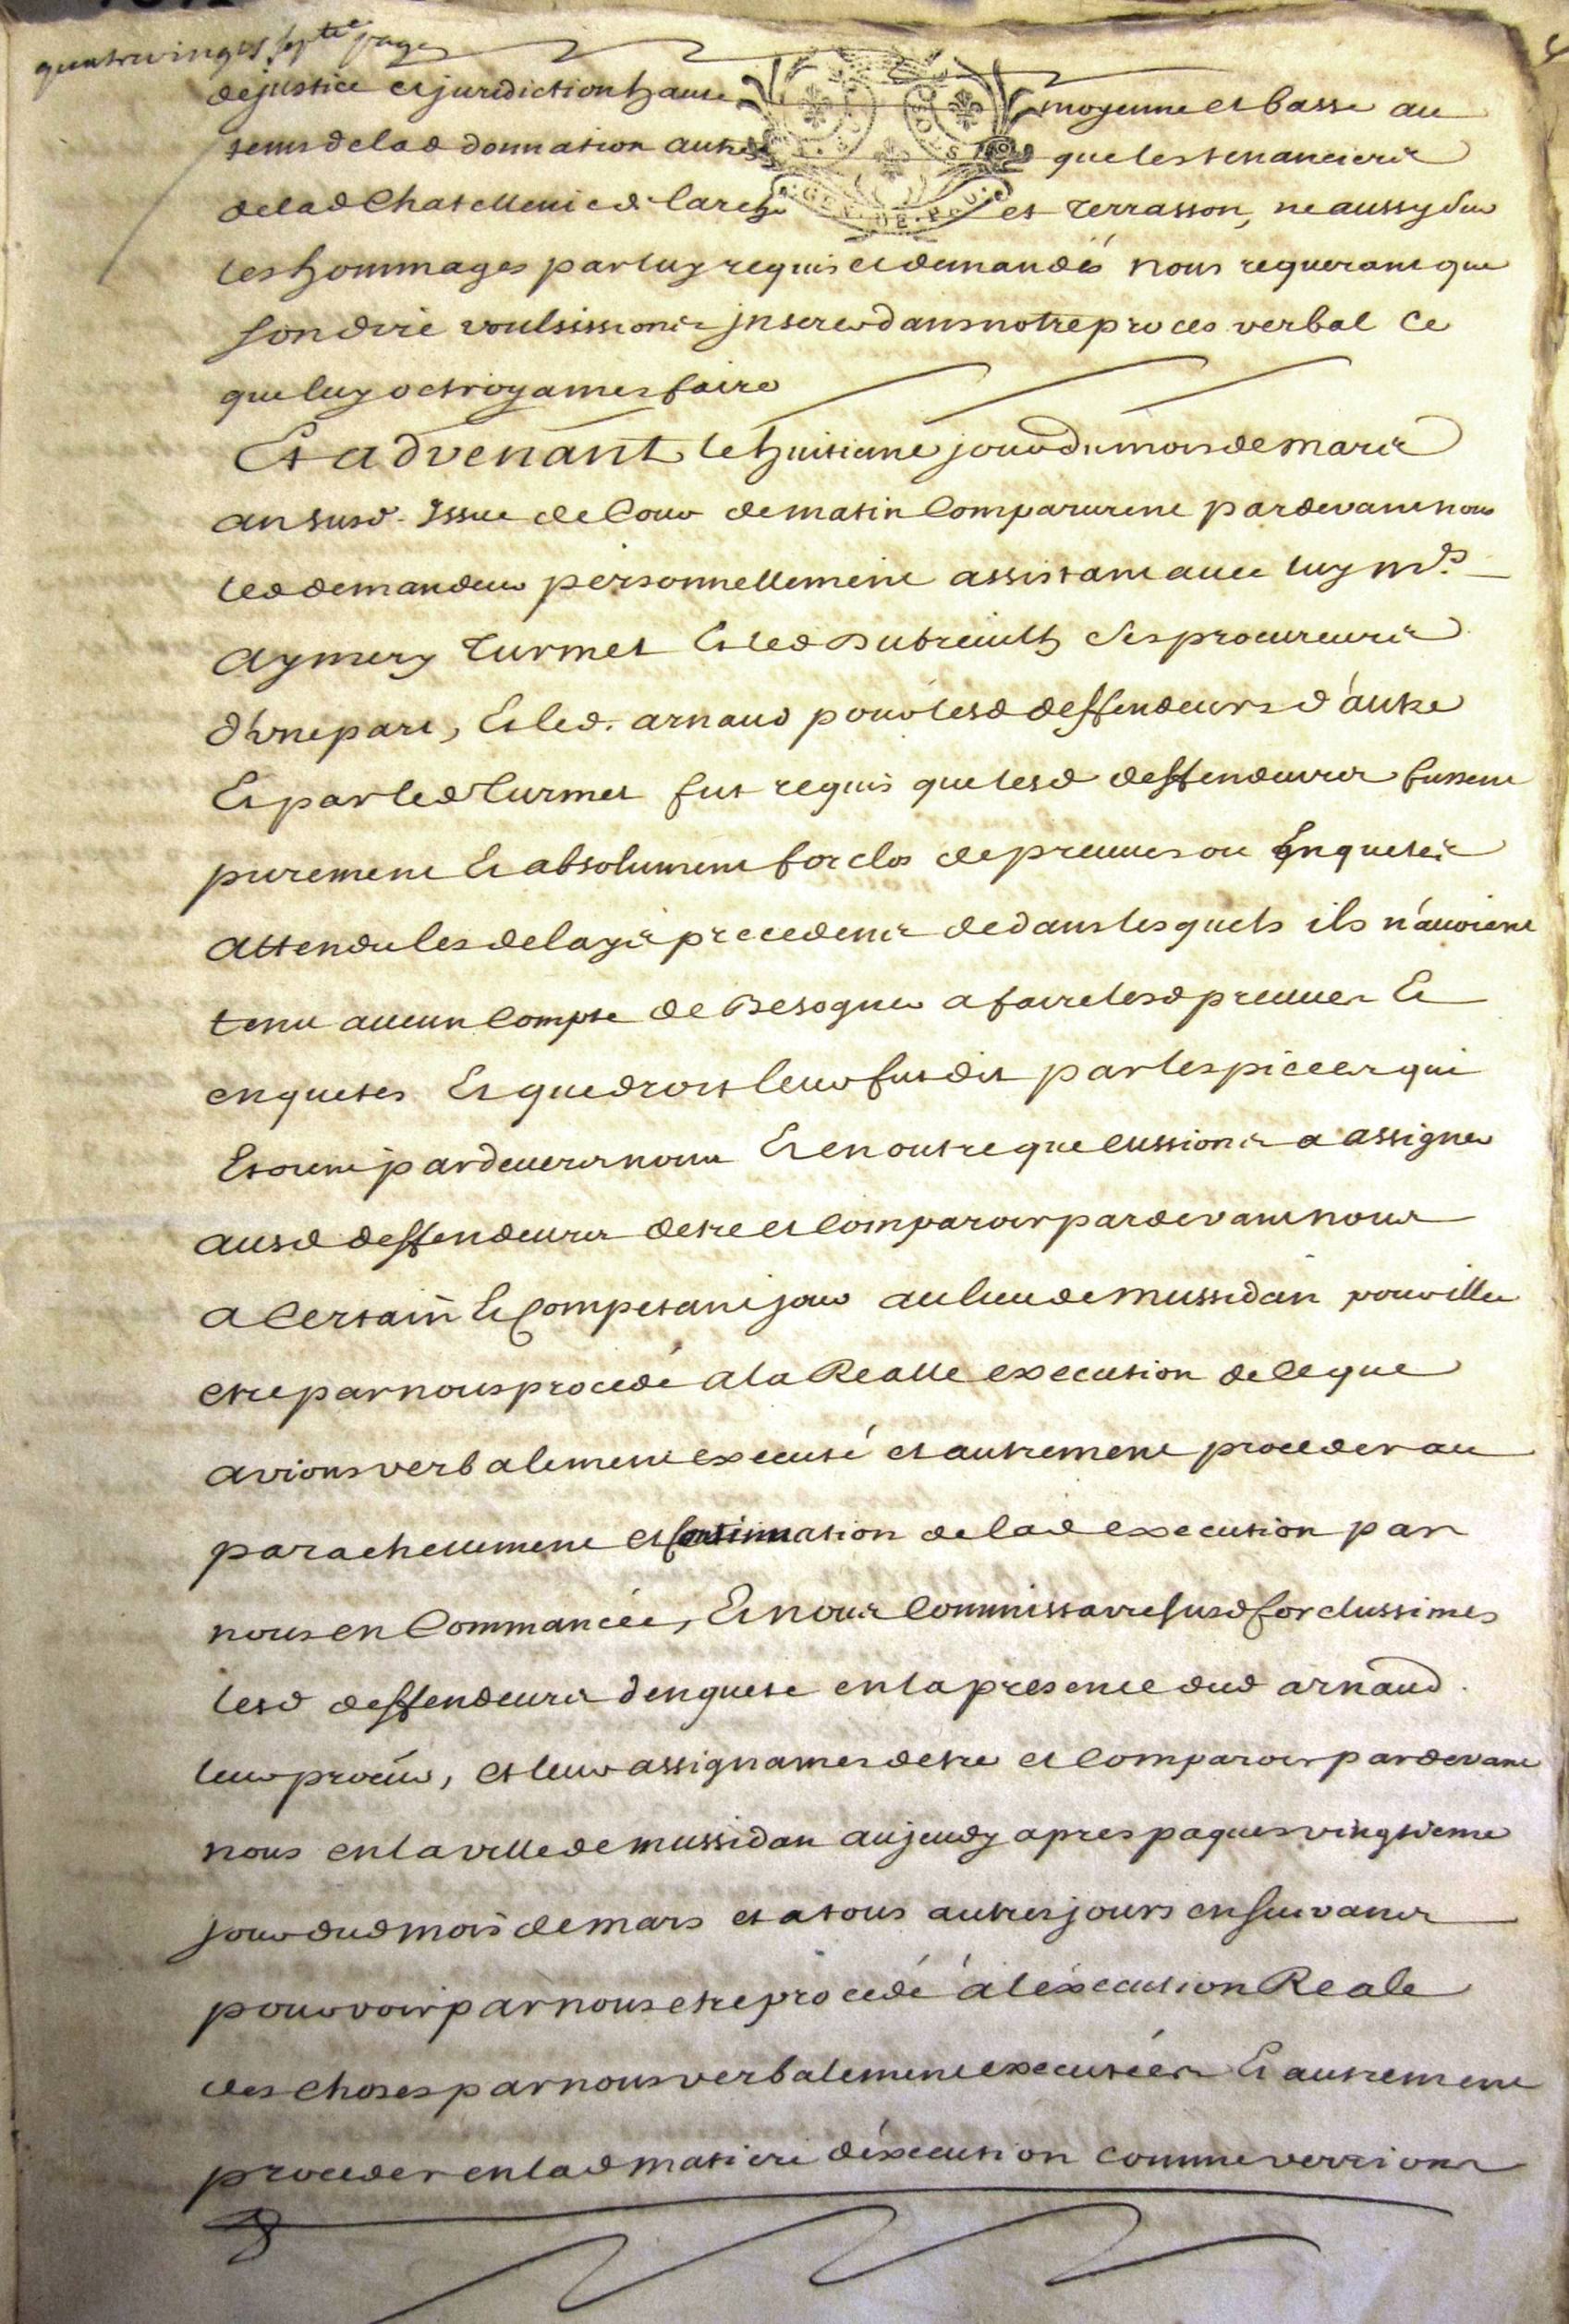 quatrevingts septe page
de justice et juridiction haute moyenne et basse au
tems de lad donnation autres que les tenanciers
de lad Chatellenie de larche et Terrasson, ne aussy sur
les hommages par luy requis et demandés nous requerant que
son dire voulsissions jnserer dans notre proces verbal Ce
que luy octroyames faire
Et advenant le huitieme jour du mois de mars
an susd. Issue de Cour de matin Comparurent pardevant nous
led demandeur personnellement assistant avec luy mes
aymery Turmet Et led Dubreuilh Ses procureurs
d'une part, Et led. arnaud pour lesd deffendeurs d'autre
Et par led Turmet fut requis que lesd deffendeurs fussent
purement Et absolument forclos de preuves ou Enquetes
attendu les delays precedens dedans lesquels ils n'avoient
tenu aucun Compte de Besogner a faire lesd preuves Et
enquetes Et que droit leur fut dit par les pieces qui
Etoient pardevers nous Et en outre que eussions a assigner
ausd deffendeurs detre et Comparoir pardevant nous
a Certain Et Competant jour au lieu de mussidan pour illec
etre par nous procedé a la Realle execution de ce que
avions verbalement executé et autrement proceder au
parachevement et Continuation de lad execution par
nous en Commancée, Et nous Commissaire susd forclussimes
lesd deffendeurs denquete en la presence dud arnaud.
leur procur, et leur assignames detre et Comparoir pardevant
nous en la ville de mussidan au jeudy apres paques vingtieme
jour dud mois de mars et a tous autres jours ensuivans
pour voir par nous etre procedé a l'éxecution Reale
des choses par nous verbalement executées Et autrement
proceder en lad matiere d'éxecution comme verrions